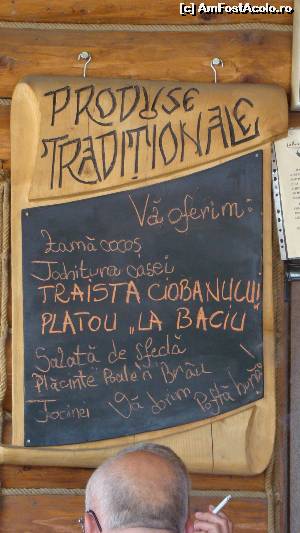 (c) AmFostAcolo.ro
PRODUSE
TRADIȚIONALE
Vă oferim:
Zamă cocoș
Tochitura casei
TRAISTA CIOBANULUI!
PLATOU „LA BACIU"
Salată de sfeclă
Plăcinte Poale'n Brâu
Tocinei Vă dorim Poftă bună!